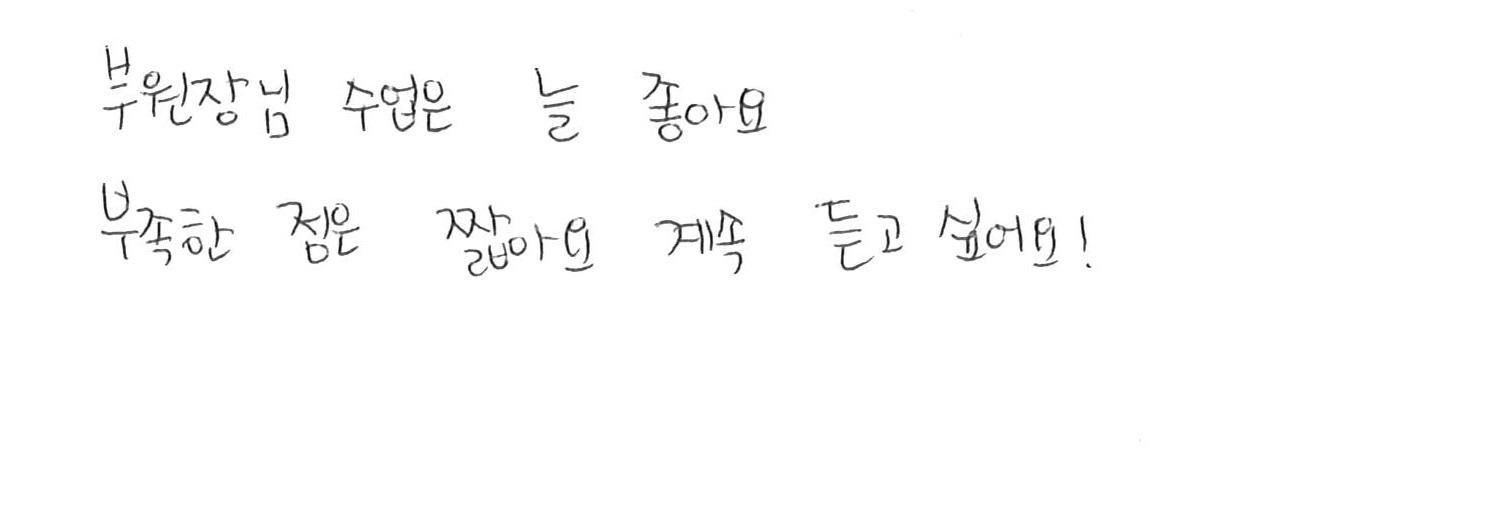 부원장님 수업은 늘 좋아요
부족한 점은 짧아요 계속 듣고 싶어요!